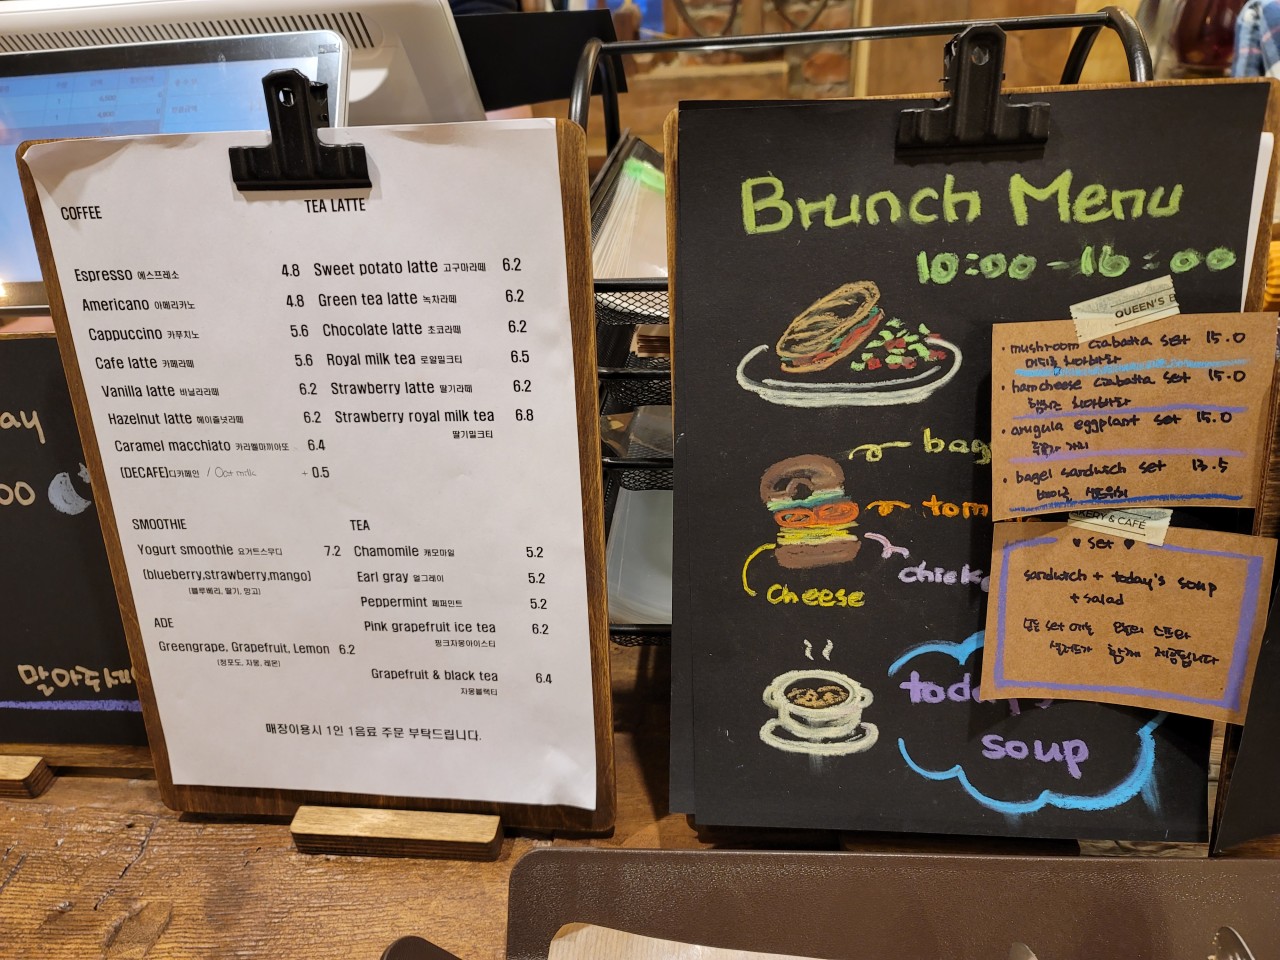 COFFEE
Espresso 에스프레소 4.8
Americano 아메리카노 4.8
Cappuccino 카푸치노 5.6
Cafe latte 카페라떼 5.6
Vanilla latte 바닐라라떼 6.2
Hazelnut latte 헤이즐넛라떼 6.2
Caramel macchiato 카라멜마끼아또 6.4
[DECAFE]디카페인 / Oat milk + 0.5
TEA LATTE
Sweet potato latte 고구마라떼 6.2
Green tea latte 녹차라떼 6.2
Chocolate latte 초코라떼 6.2
Royal milk tea 로얄밀크티 6.5
Strawberry latte 딸기라떼 6.2
Strawberry royal milk tea 6.8
딸기밀크티
SMOOTHIE
Yogurt smoothie 요거트스무디 7.2
[blueberry,strawberry,mango]
(블루베리, 딸기, 망고)
ADE
Greengrape, Grapefruit, Lemon 6.2
(청포도, 자몽, 레몬)
TEA
Chamomile 캐모마일 5.2
Earl gray 얼그레이 5.2
Peppermint 페퍼민트 5.2
Pink grapefruit ice tea 6.2
핑크자몽아이스티
Grapefruit & black tea 6.4
자몽블랙티
매장이용시 1인 1음료 주문 부탁드립니다.
Brunch Menu
10:00-16:00
QUEEN'S B
• mushroom ciabatta set 15.0
• hamcheese ciabatta set 15.0
• arugula eggplant set 15.0
• bagel sandwich set 13.5
KERY & CAFÉ
♥ set ♥
sandwich + today's soup
+ salad
모든 set 에는 오늘의 스프와
샐러드가 함께 제공됩니다
bag
tom
chick
cheese
today's
soup
ay
00
말아주세